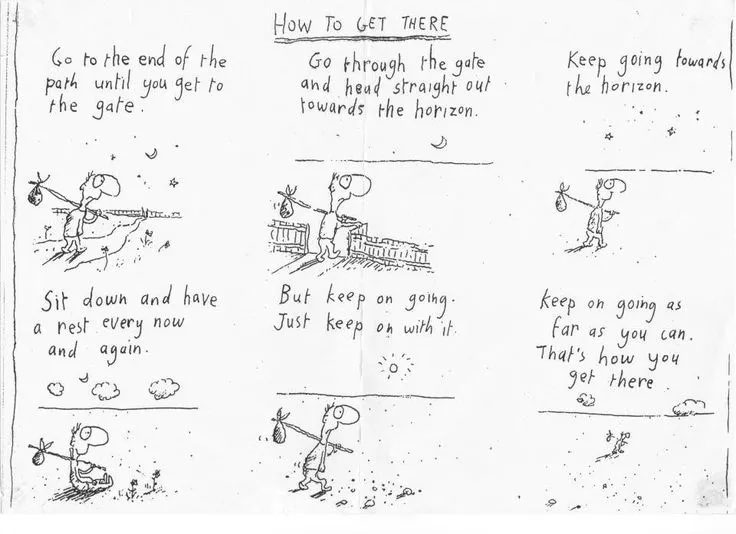 HOW TO GET THERE
Go to the end of the
path until you get to
the gate.
Go through the gate
and head straight out
towards the horizon.
Keep going towards
the horizon.
Sit down and have
a rest every now
and again.
But keep on going.
Just keep on with it.
Keep on going as
far as you can.
That's how you
get there